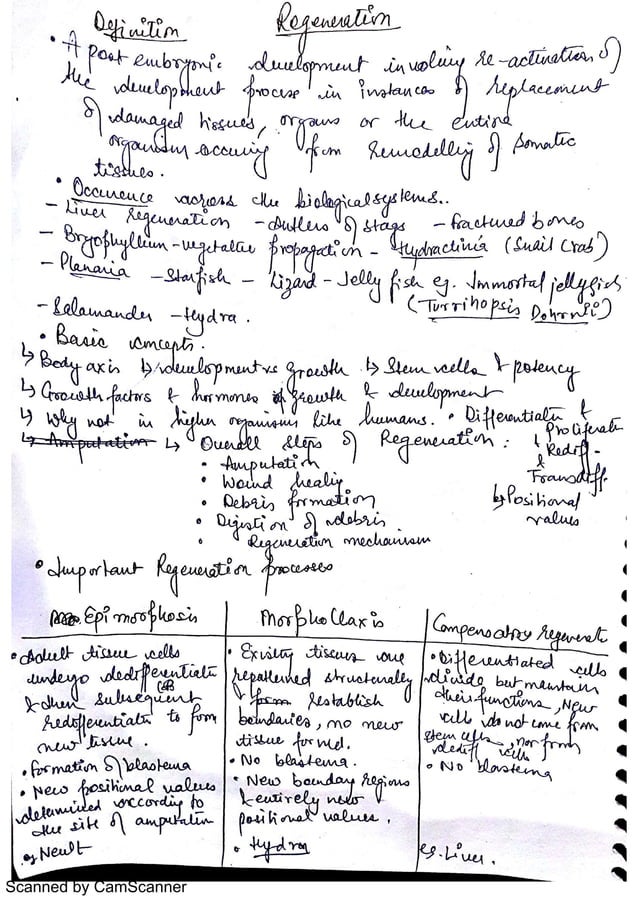 Definition
Regeneration
• A post embryonic development involving re-activation of
the development process in instances of replacement
of damaged tissues, organs or the entire
organism occuring from remodelling of somatic
tissues.
• Occurence across the biological systems..
- Liver Regeneration - Antlers of stags - fractured bones
- Bryophyllum - vegetative propagation - Hydractinia (Snail Crab)
- Planaria - Starfish - Lizard - Jelly fish eg. Immortal jellyfish
(Turrihopsis Dohrnii)
- Salamander - Hydra.
• Basic concepts.
↳ Body axis ↳ development vs growth ↳ Stem cells & potency
↳ Growth factors & hormones of growth & development
↳ Why not in higher organisms like humans. • Differentiatn &
Proliferatn
↳ Amputation ↳ Overall steps of Regeneration : & Rediff-
&
Transdiff.
• Amputation
• Wound healing
↳ Positional
values
• Debris formation
• Digestion of debris.
• Regeneration mechanism
• Important Regeneration processes
Epimorphosis
Morphollaxis
Compensatory regenerate
• Adult tissue cells
undergo dedifferentiatn
& then subsequent
redifferentiatn to form
new tissue.
• formation of blastema
• New positional values
determined according to
the site of amputation
eg Newt
• Existing tissues are
repatterned structurally
& form restablish
boundaries, no new
tissue formed.
• No blastema.
• New bounday regions
& entirely new
positional values.
• Hydra
• Differentiated cells
divide but maintain
their functions, New
cells do not come from
stem cells, nor from
dediff cells
• No blastema
eg. Liver.
Scanned by CamScanner